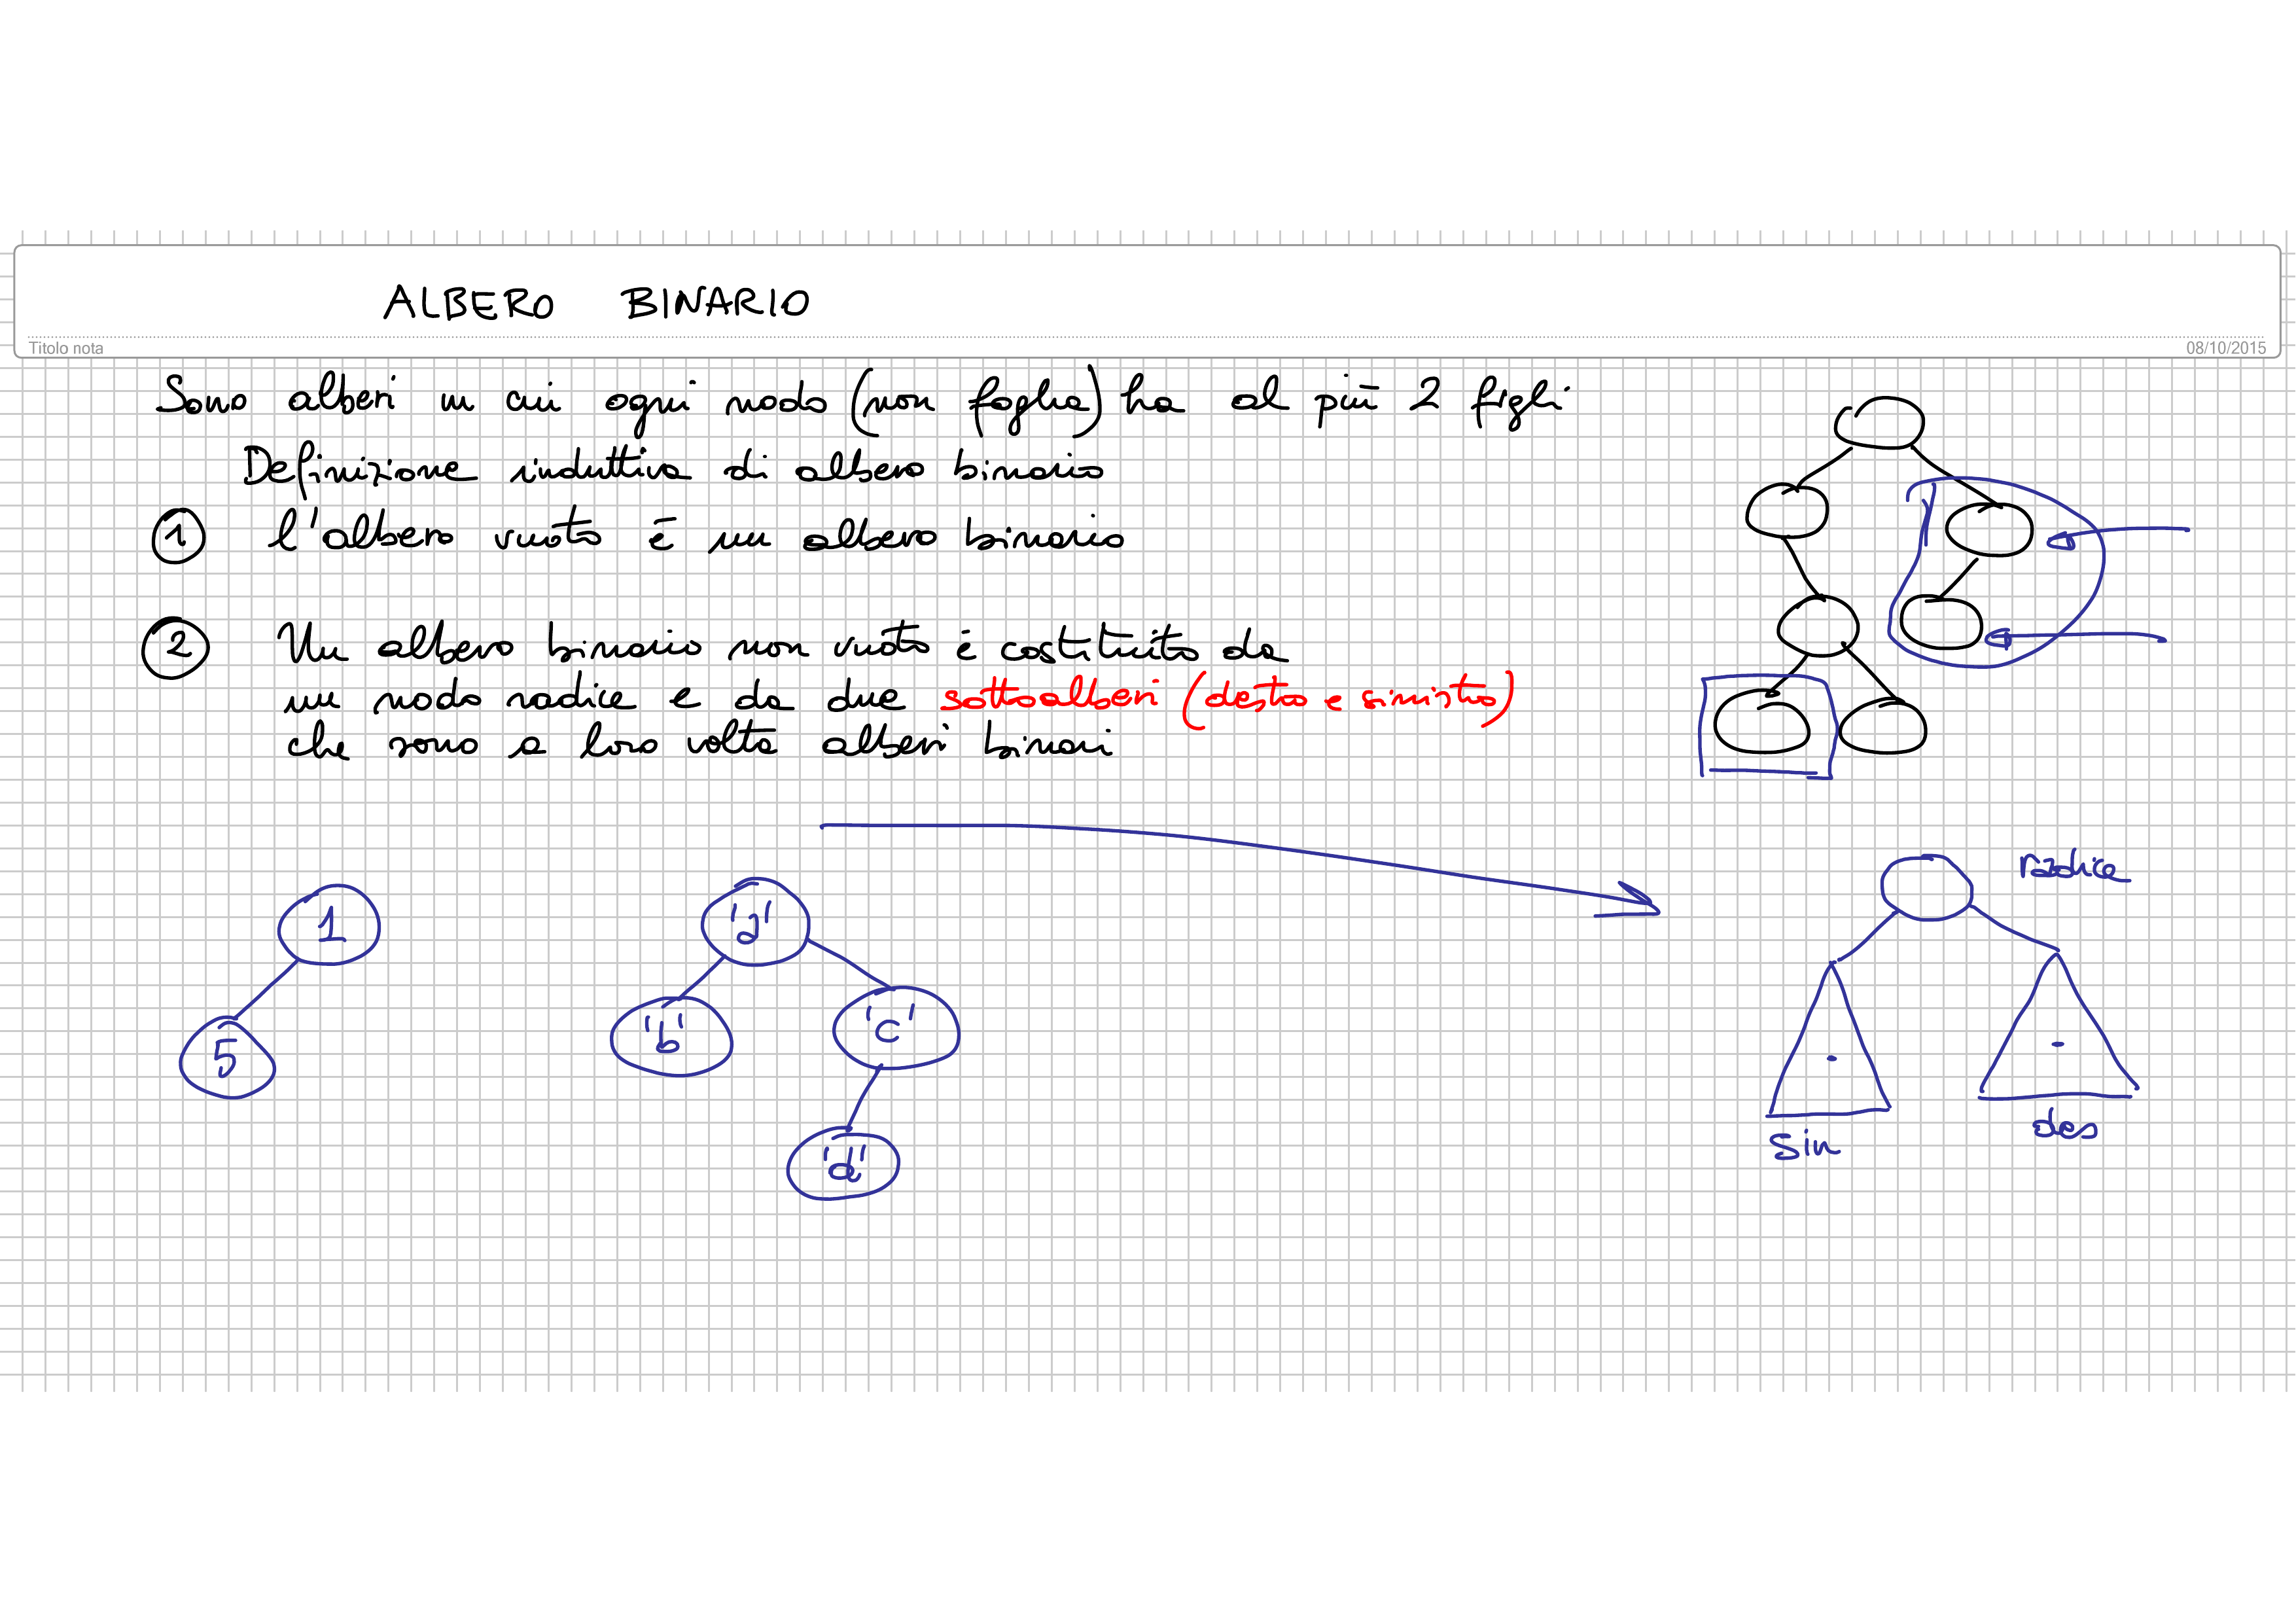 ALBERO BINARIO
Titolo nota
08/10/2015
Sono alberi in cui ogni nodo (non foglia) ha al più 2 figli
Definizione induttiva di albero binario
1 l'albero vuoto è un albero binario
2 Un albero binario non vuoto è costituito da
un nodo radice e da due sottoalberi (destro e sinistro)
che sono a loro volta alberi binari
radice
1
'a'
5
'b'
'c'
'd'
sin
des